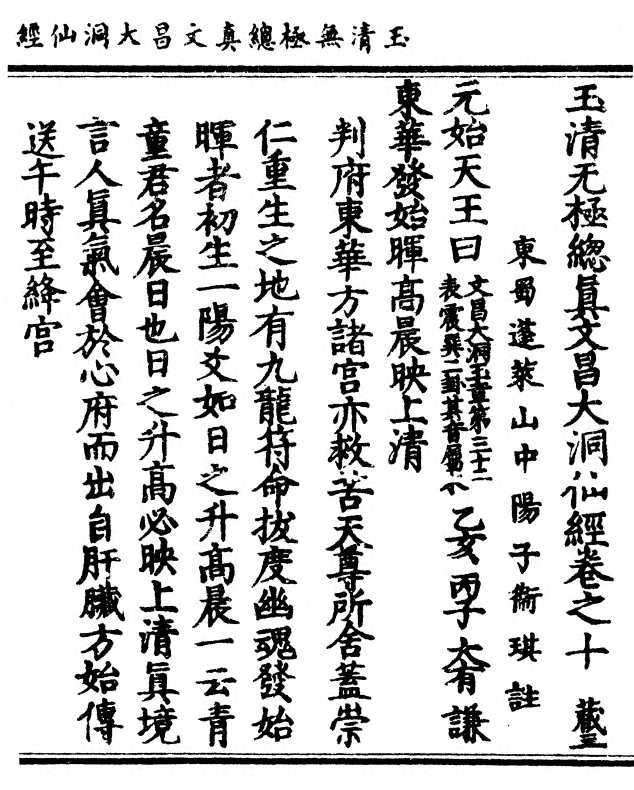 玉清無極總真文昌大洞仙經
玉清无極總眞文昌大洞仙經卷之十 藏
東蜀蓬萊山中陽子衞琪註
元始天王曰 文昌大洞玉章第三十二 表震巽二卦其音屬 乙亥 丙子 大有 謙
東華發始暉高晨映上清
判府東華方諸宮亦救苦天尊所舍蓋崇
仁重生之地有九龍符命拔度幽魂發始
暉者初生一陽爻如日之升高晨一云青
童君名晨日也日之升高必映上清眞境
言人眞氣會於心府而出自肝臟方始傳
送午時至絳宮